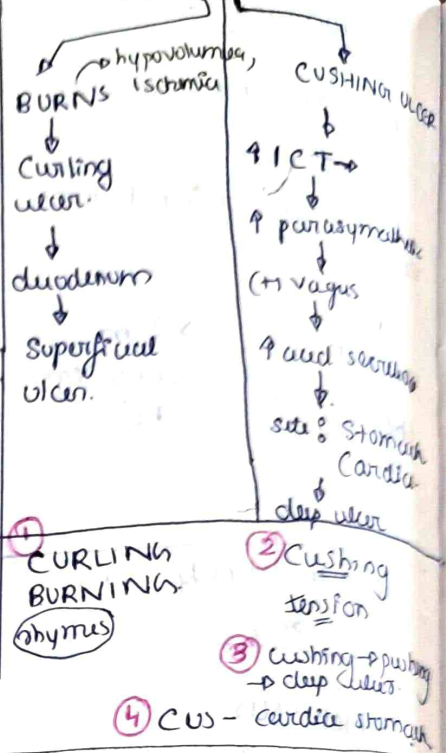 hypovolumea,
ischmia
BURNS
↓
Curling
ulcer.
↓
duodenum
↓
Superficial
ulcer.
CUSHING ULCER
↓
↑ I C T →
↓
↑ parasympathetic
↓
(+) vagus
↓
↑ acid secretion
↓
site : Stomach
Cardia
↓
deep ulcer
① CURLING
BURNING
rhymes
② Cushing
tension
③ cushing → pushing
→ deep ulcer
④ CUS - cardia stomach